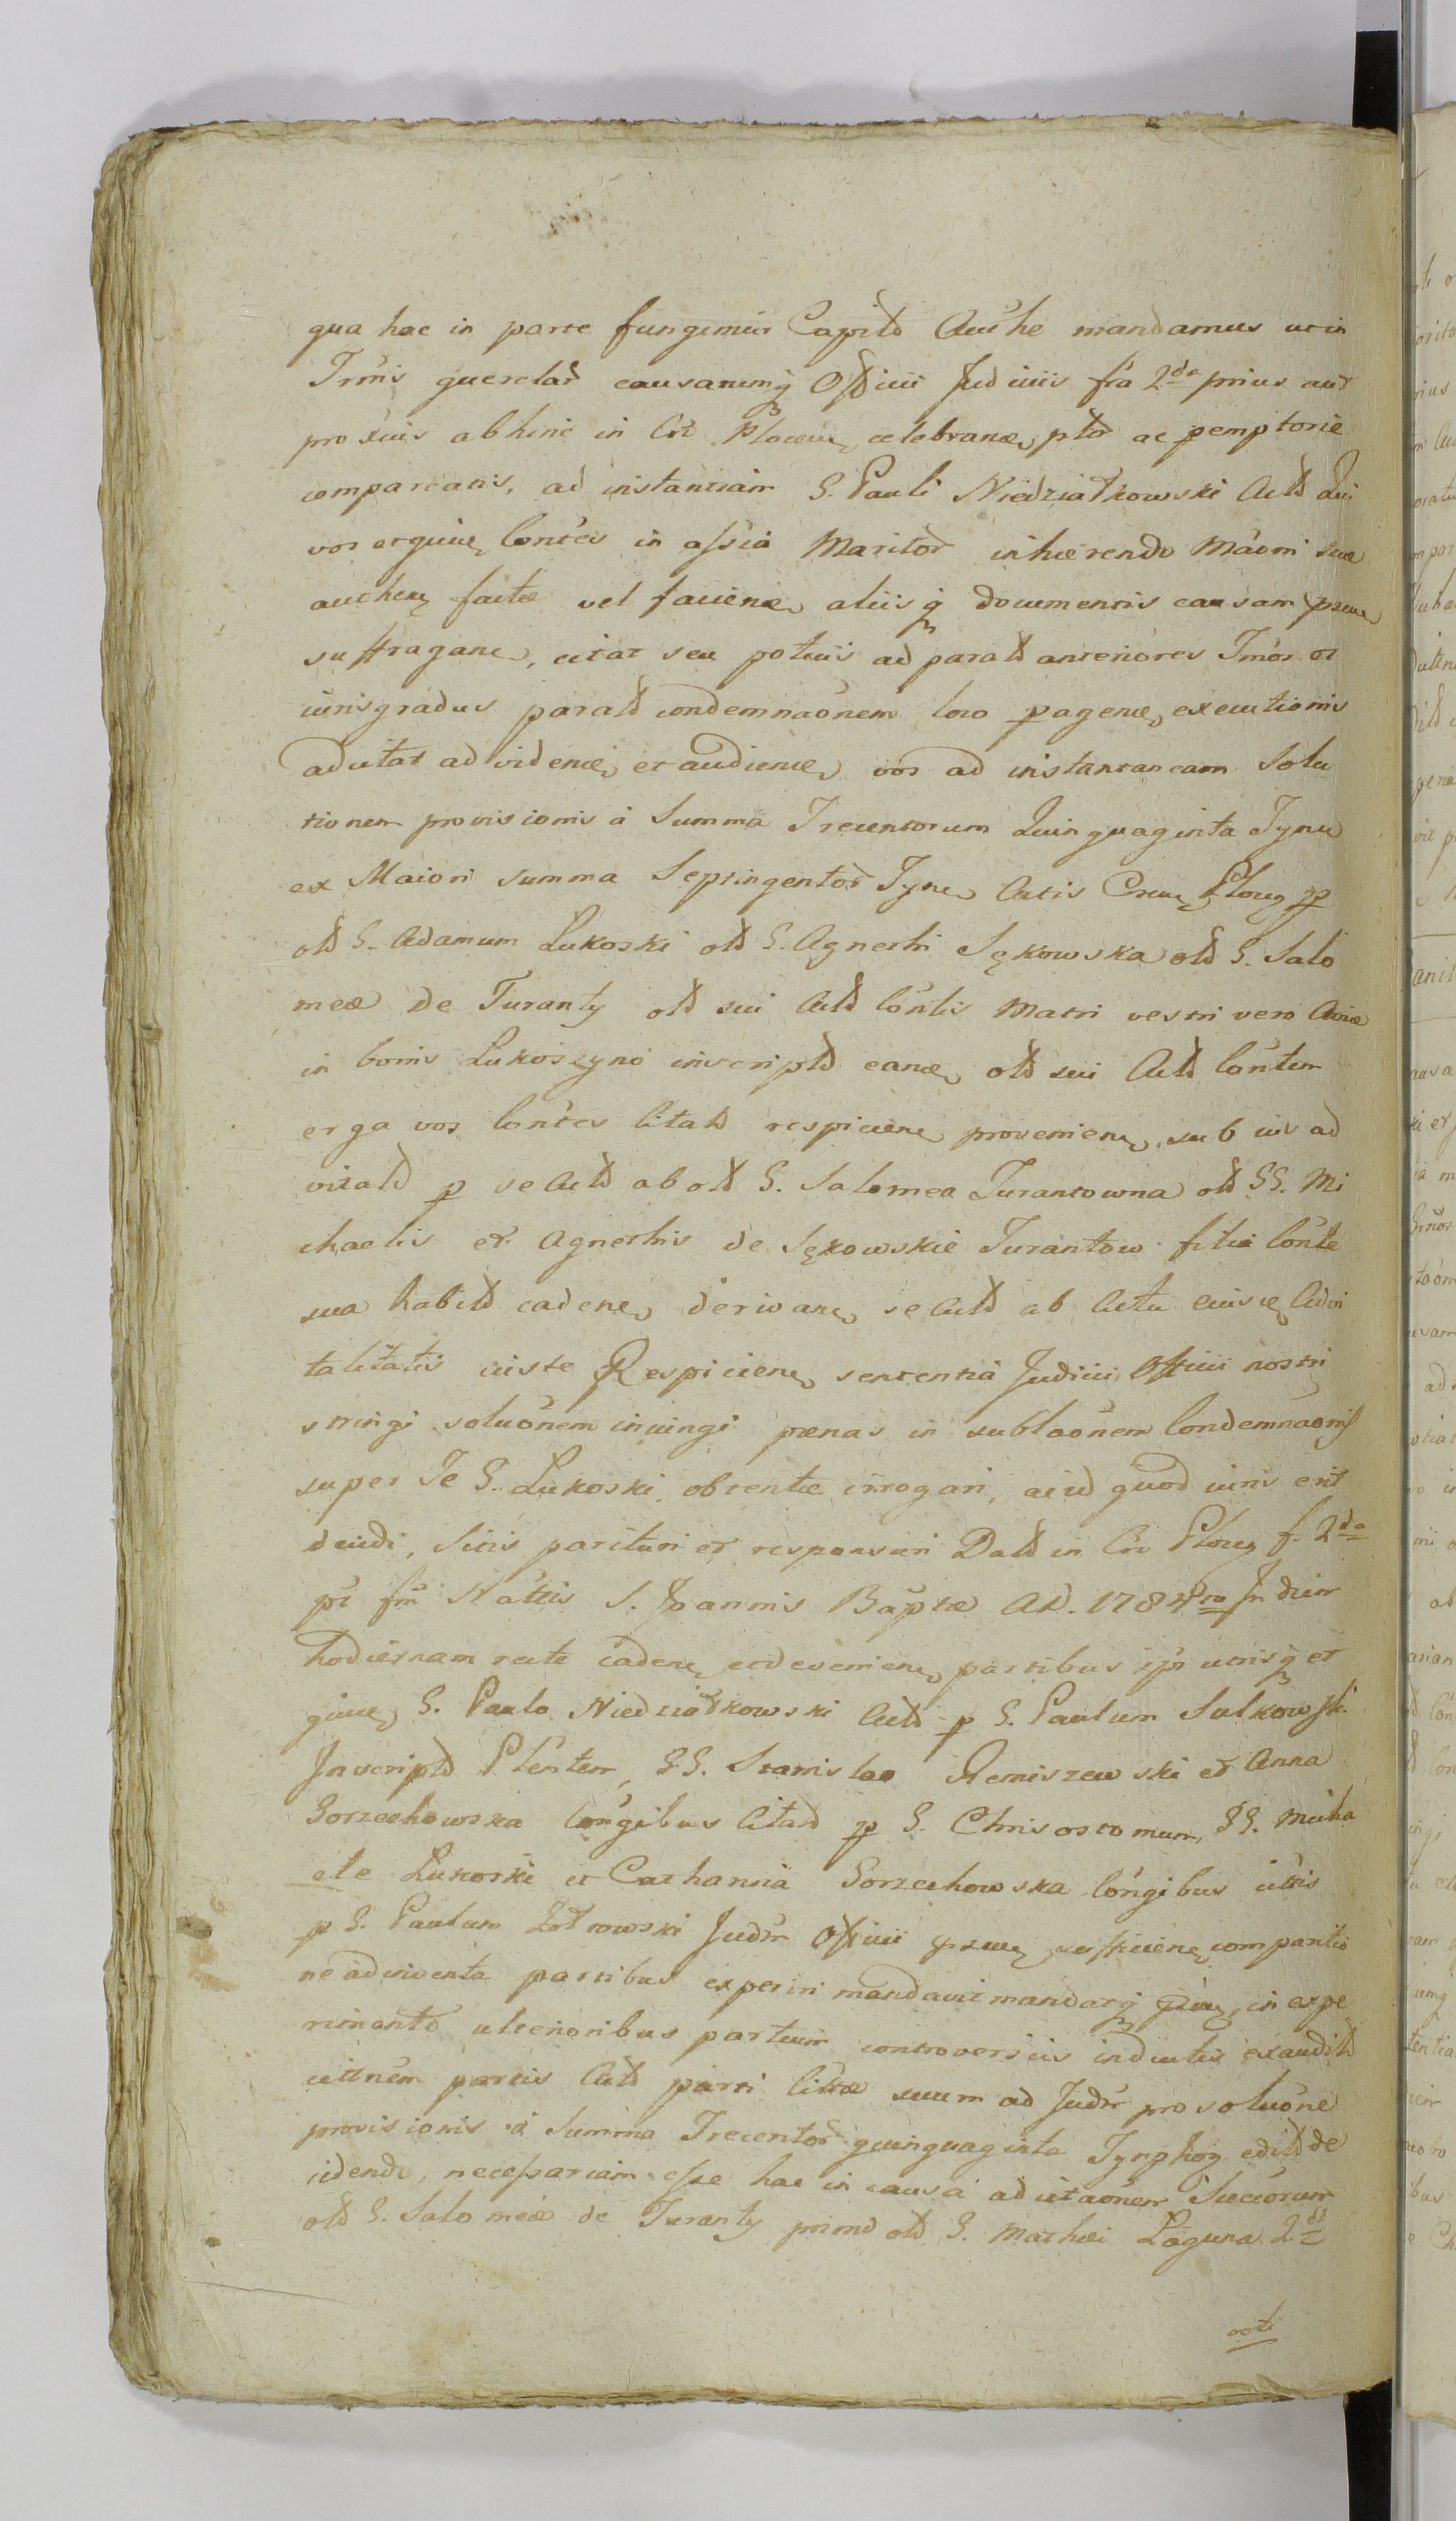 qua hac in parte fungimur Capitł Auche mandamus ut in
Trmis querelar causarumq Offciii Judciiis fra 2da prius aut
proxuis abhinc in Civ Plocen celebran, pltr ac pemptorie
compareatis, ad instantiam G. Pauli Niedziałkowski Actł Qui
vos erquuc Contes in assia Maritor inhærendo Maoni suæ
authen factæ vel faciena, aliisq documentis causam pnem
suffragane, citat seu potius ad paratł anteriores Tmos et
iurisgradus paratł condemnaonem loco pagenæ executionis
adcitat ad videnci et audiencæ vos ad instantaneam Solu
tionem provisionis à Summa Trecentorum Quinquaginta Tynu
ex Maiori summa Septingentor Tynu Actis Cren Ploceń p
olł G. Adamum Lukoski olł G. Agnethi Sękowska olł G. Salo
meæ de Turanty olł sui Actł Contis Matri vestri vero Amæ
in bonis Lukoszyno inscriptł eanæ olł sui Actł Contem
erga vos Contes Citatł respiciene proveniene sub iur ad
vitałł p se Actł ab olł G. Salomea Turantowna olł GG. Mi
chaelis et Agnethis de Sękowskie Turantow filia Conte
sua habitł cadene derivane se Actł ab Actu euisce Advi
talitatis iuste Respiciene sententia Judicii Offciii nostri
stringi soluonem iniungi pœnas in sublaonem Condemnaonis
super Te G. Lukoski obtentæ irrogari, acid quod iuris erit
decidi, Sitis parituri et responsuri Datł in Civ Ploceń f. 2da
pt fm Nattis S. Joannis Baptæ AD. 1784to In diem
hodiernam recte cadene edeveniene partibus ipr utrisq et
quuc G. Paulo Niedziałkowski Actł p G. Paulum Sulkowski
Inscriptł Plentem, GG. Stanislao Remiszewski et Anna
Gorzechowska Congibus Citatł p G. Chrisostomum, GG. Micha
ele Lukoski et Catharina Gorzechowska Congibus citis
p G. Paulum Zołtowski Judm Offciii psens sufficiene comparitio
ne adinventa partibus experiri mandavit mandatq Quuc, in expe
rimento ulterioribus partium controversiis inductis exauditł
cittnem partis Actł parti Cittæ suum ad Judm pro soluone
provisionis à Summa Trecentor quinquaginta Tynphon editł de
cidendo, necessariam esse hac in causa adcitaonem Succorum
olł G. Salomeæ de Turanty primo olł G. Mathæi Łaguna 2do
voti